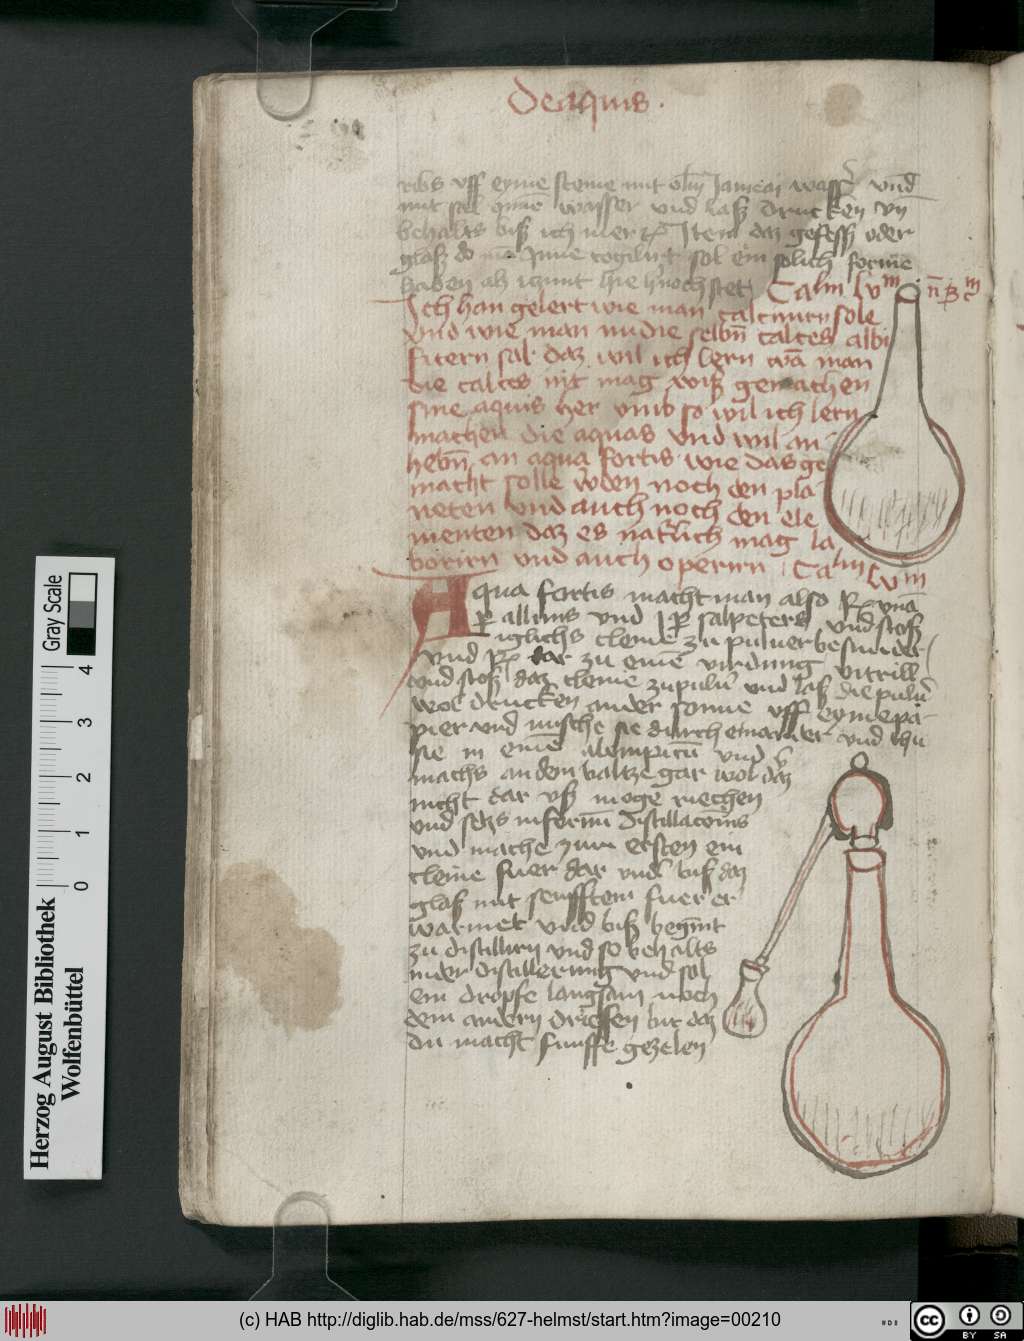 De aquis .
uff eyme steine mit wasser und
mit sal wasser und lasz drucken vn
behalts bisz ich mer Item daz gefesz oder
glasz do Inne sol ein solich forme
haben als hie noch stet Calm lvm
Ich han gelert wie man calcinirn sole
Vnd wie man nu die selbn calces albi
ficirn sal daz wil ich lern wā man
die calces nit mag wisz gemachen
sine aquis her vmb so wil ich lern
machen die aquas vnd wil an
hebn an aqua fortis wie das ge
macht solle wden noch den pla
neten vnd auch noch den ele
menten daz es natrlich mag la
borirn vnd auch operirn . Calm lvm
Aqua fortis macht man also
allunis vnd salpeters vnd stosz
iglichs cleine zu puluer besunder
vnd dar zu eine virdung vitrill
vnd stosz daz cleine zu pulu vnd lasz die pulu
wol drucken an der sonne uff eyme pa-
pier vnd mische sie durch einander vnd thu
sie in eine alempicu vnd
machs an den baltze gar wol daz
nicht dar vsz moge riechen
vnd setzs in forni distillacois
vnd mache zum ersten ein
cleine fuer dar vnd bisz daz
glasz mit senfftem fuer er
warmet vnd bisz begint
zu distillirn vnd so behalts
in der distillerung vnd sol
ein dropfe langsam noch
dem andern drieffen bit daz
du macht funffe gezelen
Gray Scale
0 1 2 3 4
Herzog August Bibliothek
Wolfenbüttel
(c) HAB http://diglib.hab.de/mss/627-helmst/start.htm?image=00210
cc BY SA